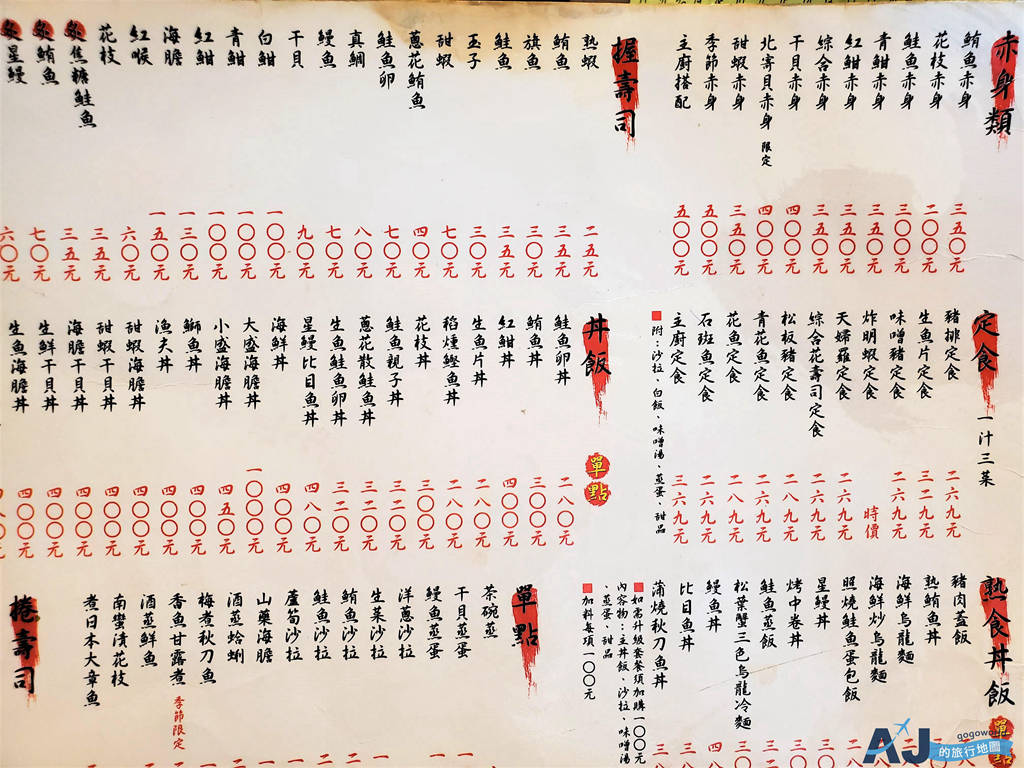 赤身類
鮪魚赤身
花枝赤身
鮭魚赤身
青魽赤身
紅魽赤身
綜合赤身
干貝赤身
北寄貝赤身 限定
甜蝦赤身
季節赤身
主廚搭配
三五〇元
二〇〇元
三〇〇元
三五〇元
三五〇元
三五〇元
四〇〇元
四〇〇元
三五〇元
五〇〇元
五〇〇元
握壽司
熟蝦
鮪魚
旗魚
鮭魚
玉子
甜蝦
蔥花鮪魚
鮭魚卵
真鯛
鰻魚
干貝
白魽
青魽
紅魽
海膽
紅喉
花枝
炙焦糖鮭魚
炙鮪魚
炙星鰻
二五元
三五元
三〇元
三五元
三〇元
七〇元
四〇元
七〇元
八〇元
七〇元
九〇元
一〇〇元
一〇〇元
一〇〇元
一三〇元
一五〇元
六〇元
三五元
三五元
七〇元
六〇元
定食 一汁三菜
豬排定食
生魚片定食
味噌豬定食
炸明蝦定食
天婦羅定食
綜合花壽司定食
松板豬定食
青花魚定食
花魚定食
石斑魚定食
主廚定食
附：沙拉、白飯、味噌湯、蒸蛋、甜品
二六九元
三二九元
二六九元
時價
二六九元
二六九元
二八九元
二六九元
二八九元
二六九元
三六九元
丼飯
單點
鮭魚卵丼
鮪魚丼
紅魽丼
生魚片丼
稻燻鰹魚丼
花枝丼
鮭魚親子丼
蔥花散鮭魚丼
生魚鮭魚卵丼
星鰻比目魚丼
海鮮丼
大盛海膽丼
小盛海膽丼
鰤魚丼
漁夫丼
甜蝦海膽丼
甜蝦干貝丼
海膽干貝丼
生鮮干貝丼
生魚海膽丼
二八〇元
三〇〇元
四〇〇元
二八〇元
二八〇元
三〇〇元
三二〇元
三二〇元
三二〇元
四八〇元
四〇〇元
一〇〇〇元
四五〇元
四〇〇元
四〇〇元
四〇〇元
四〇〇元
四〇〇元
四〇〇元
四〇〇元
熟食丼飯
單點
豬肉蓋飯
熟鮪魚丼
海鮮烏龍麵
海鮮炒烏龍麵
照燒鮭魚蛋包飯
星鰻丼
烤中卷丼
鮭魚蒸飯
松葉蟹三色烏龍冷麵
鰻魚丼
比目魚丼
蒲燒秋刀魚丼
如需升級套餐須加購一〇〇元
內容物：主丼飯、沙拉、味噌湯
、蒸蛋、甜品
加料每項一〇〇元
單點
茶碗蒸
干貝蒸蛋
鰻魚蒸蛋
洋蔥沙拉
生菜沙拉
鮪魚沙拉
鮭魚沙拉
蘆筍沙拉
山藥海膽
酒蒸蛤蜊
梅煮秋刀魚
香魚甘露煮 季節限定
酒蒸鮮魚
南蠻漬花枝
煮日本大章魚
捲壽司
AJ
gogoworld
的旅行地圖